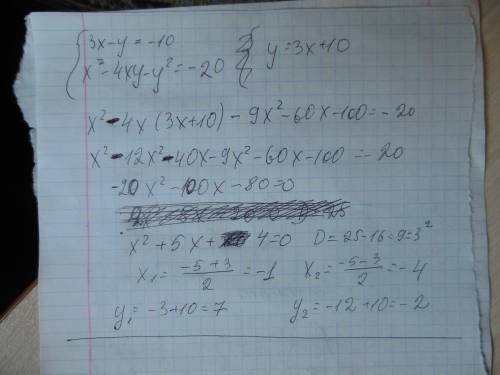 { 3x-y=-10
x²-4xy-y²=-20 { y=3x+10
x²-4x(3x+10)-9x²-60x-100=-20
x²-12x²-40x-9x²-60x-100=-20
-20x²-100x-80=0
x²+5x+4=0 D=25-16=9=3²
x₁=(-5+3)/2=-1 x₂=(-5-3)/2=-4
y₁=-3+10=7 y₂=-12+10=-2